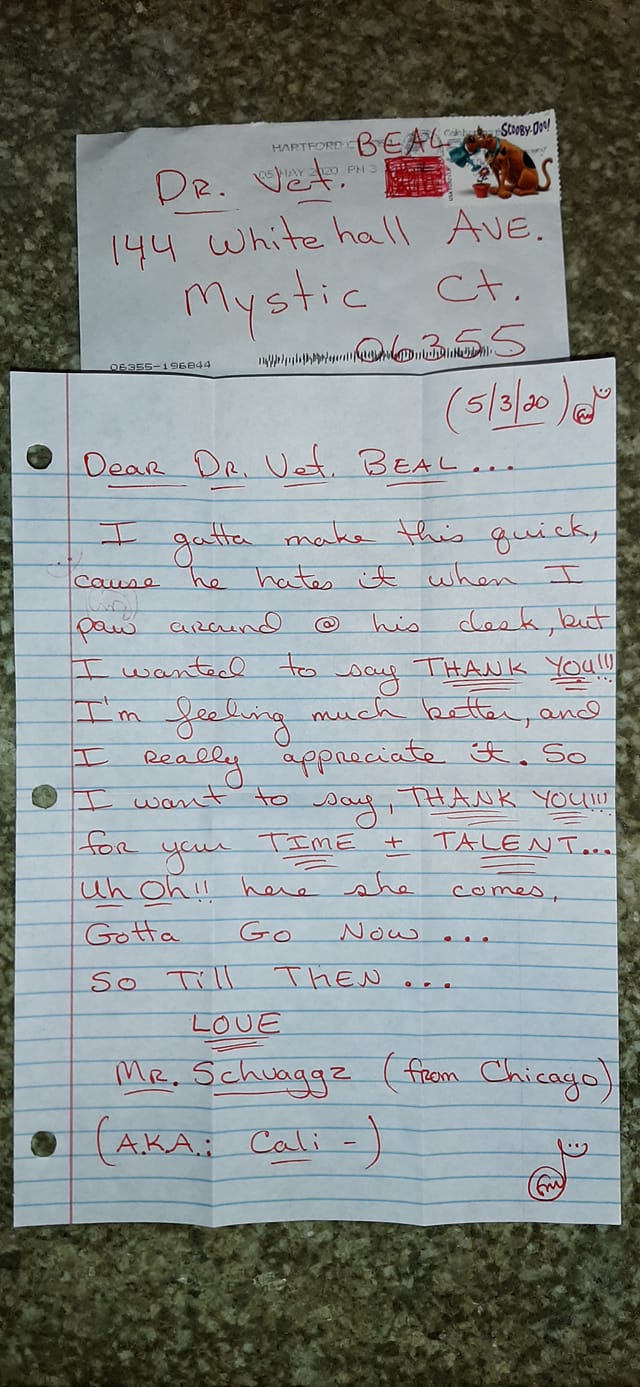 HARTFORD C
BEAL
SCOOBY-DOO!
05 MAY 2020 PM 3
DR. Vet.
144 Whitehall AVE.
Mystic Ct.
06355
06355-196844
(5/3/20)
DEAR DR. Vet. BEAL...
I gatta make this quick,
cause he hates it when I
paw around @ his desk, but
I wanted to say THANK YOU!!!
I'm feeling much better, and
I REally appreciate it. So
I want to say, THANK YOU!!!
for your TIME + TALENT...
Uh Oh!! here she comes,
Gotta Go Now...
So Till THEN...
LOVE
MR. Schvaggz (from Chicago)
(A.K.A.: Cali -)